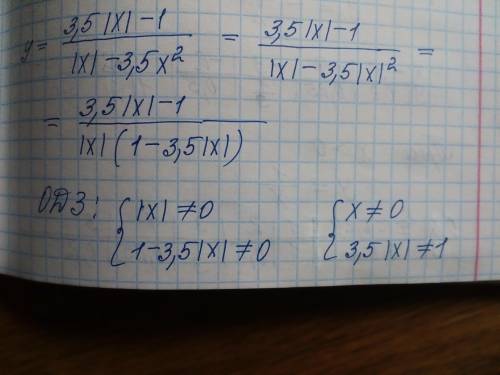 y = (3,5|x| − 1)/(|x| − 3,5x²) = (3,5|x| − 1)/(|x| − 3,5|x|²) =
= (3,5|x| − 1)/(|x|(1 − 3,5|x|))
ОДЗ: { |x| ≠ 0 { x ≠ 0
1 − 3,5|x| ≠ 0 3,5|x| ≠ 1